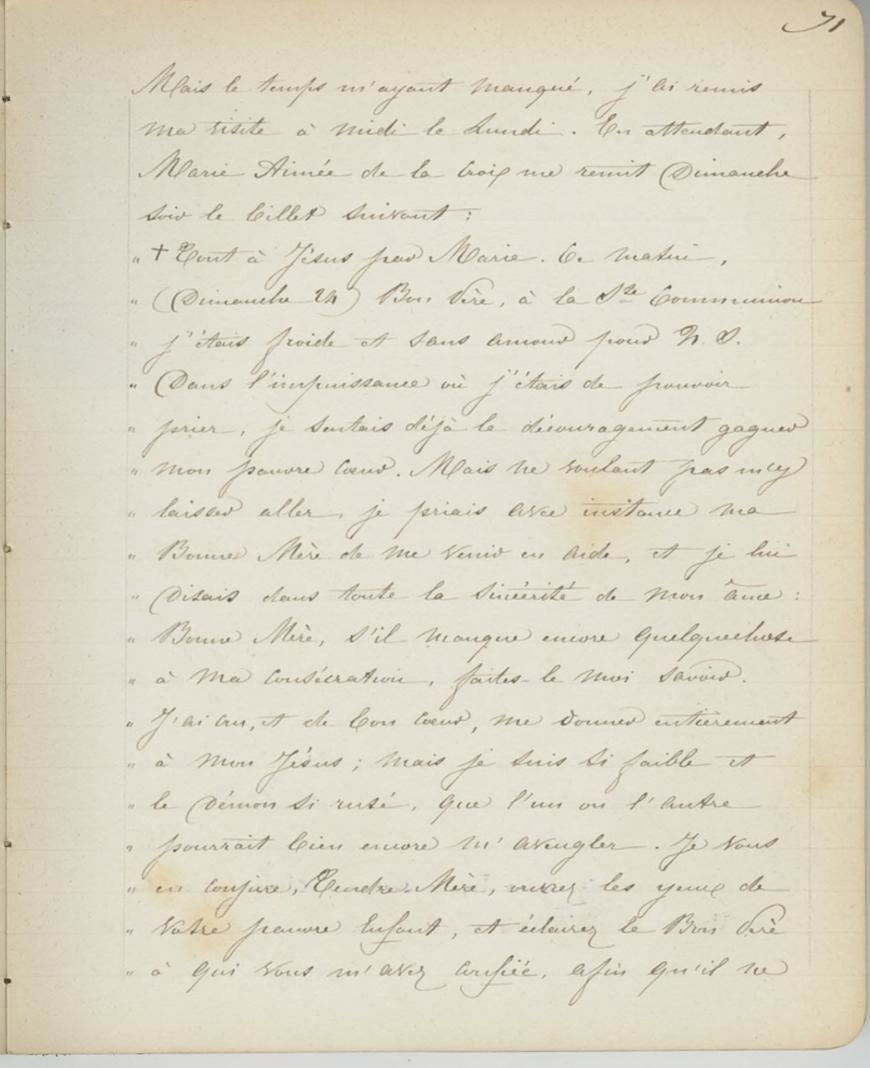 71
Mais le temps m'ayant manqué, j'ai remis
ma visite à midi le Lundi. En attendant,
Marie Aimée de la Croix me remit Dimanche
soir le billet suivant :
" + Tout à Jésus par Marie. Ce matin,
" (Dimanche 24) Bon Père, à la Ste Communion
" j'étais froide et sans amour pour N. S.
" Dans l'impuissance où j'étais de pouvoir
" prier, je sentais déjà le découragement gagner
" mon pauvre cœur. Mais ne voulant pas m'y
" laisser aller, je priais avec instance ma
" Bonne Mère de me venir en aide, et je lui
" Disais dans toute la sincérité de mon âme :
" Bonne Mère, s'il manque encore quelquechose
" à ma consécration, faites-le moi savoir.
" J'ai cru, et de bon cœur, me donner entièrement
" à mon Jésus ; mais je suis si faible et
" le Démon si rusé, que l'un ou l'autre
" pourrait bien encore m'aveugler. Je vous
" en conjure, Tendre Mère, ouvrez les yeux de
" Votre pauvre Enfant, et éclairez le Bon Père
" à qui vous m'avez confiée, afin qu'il ne